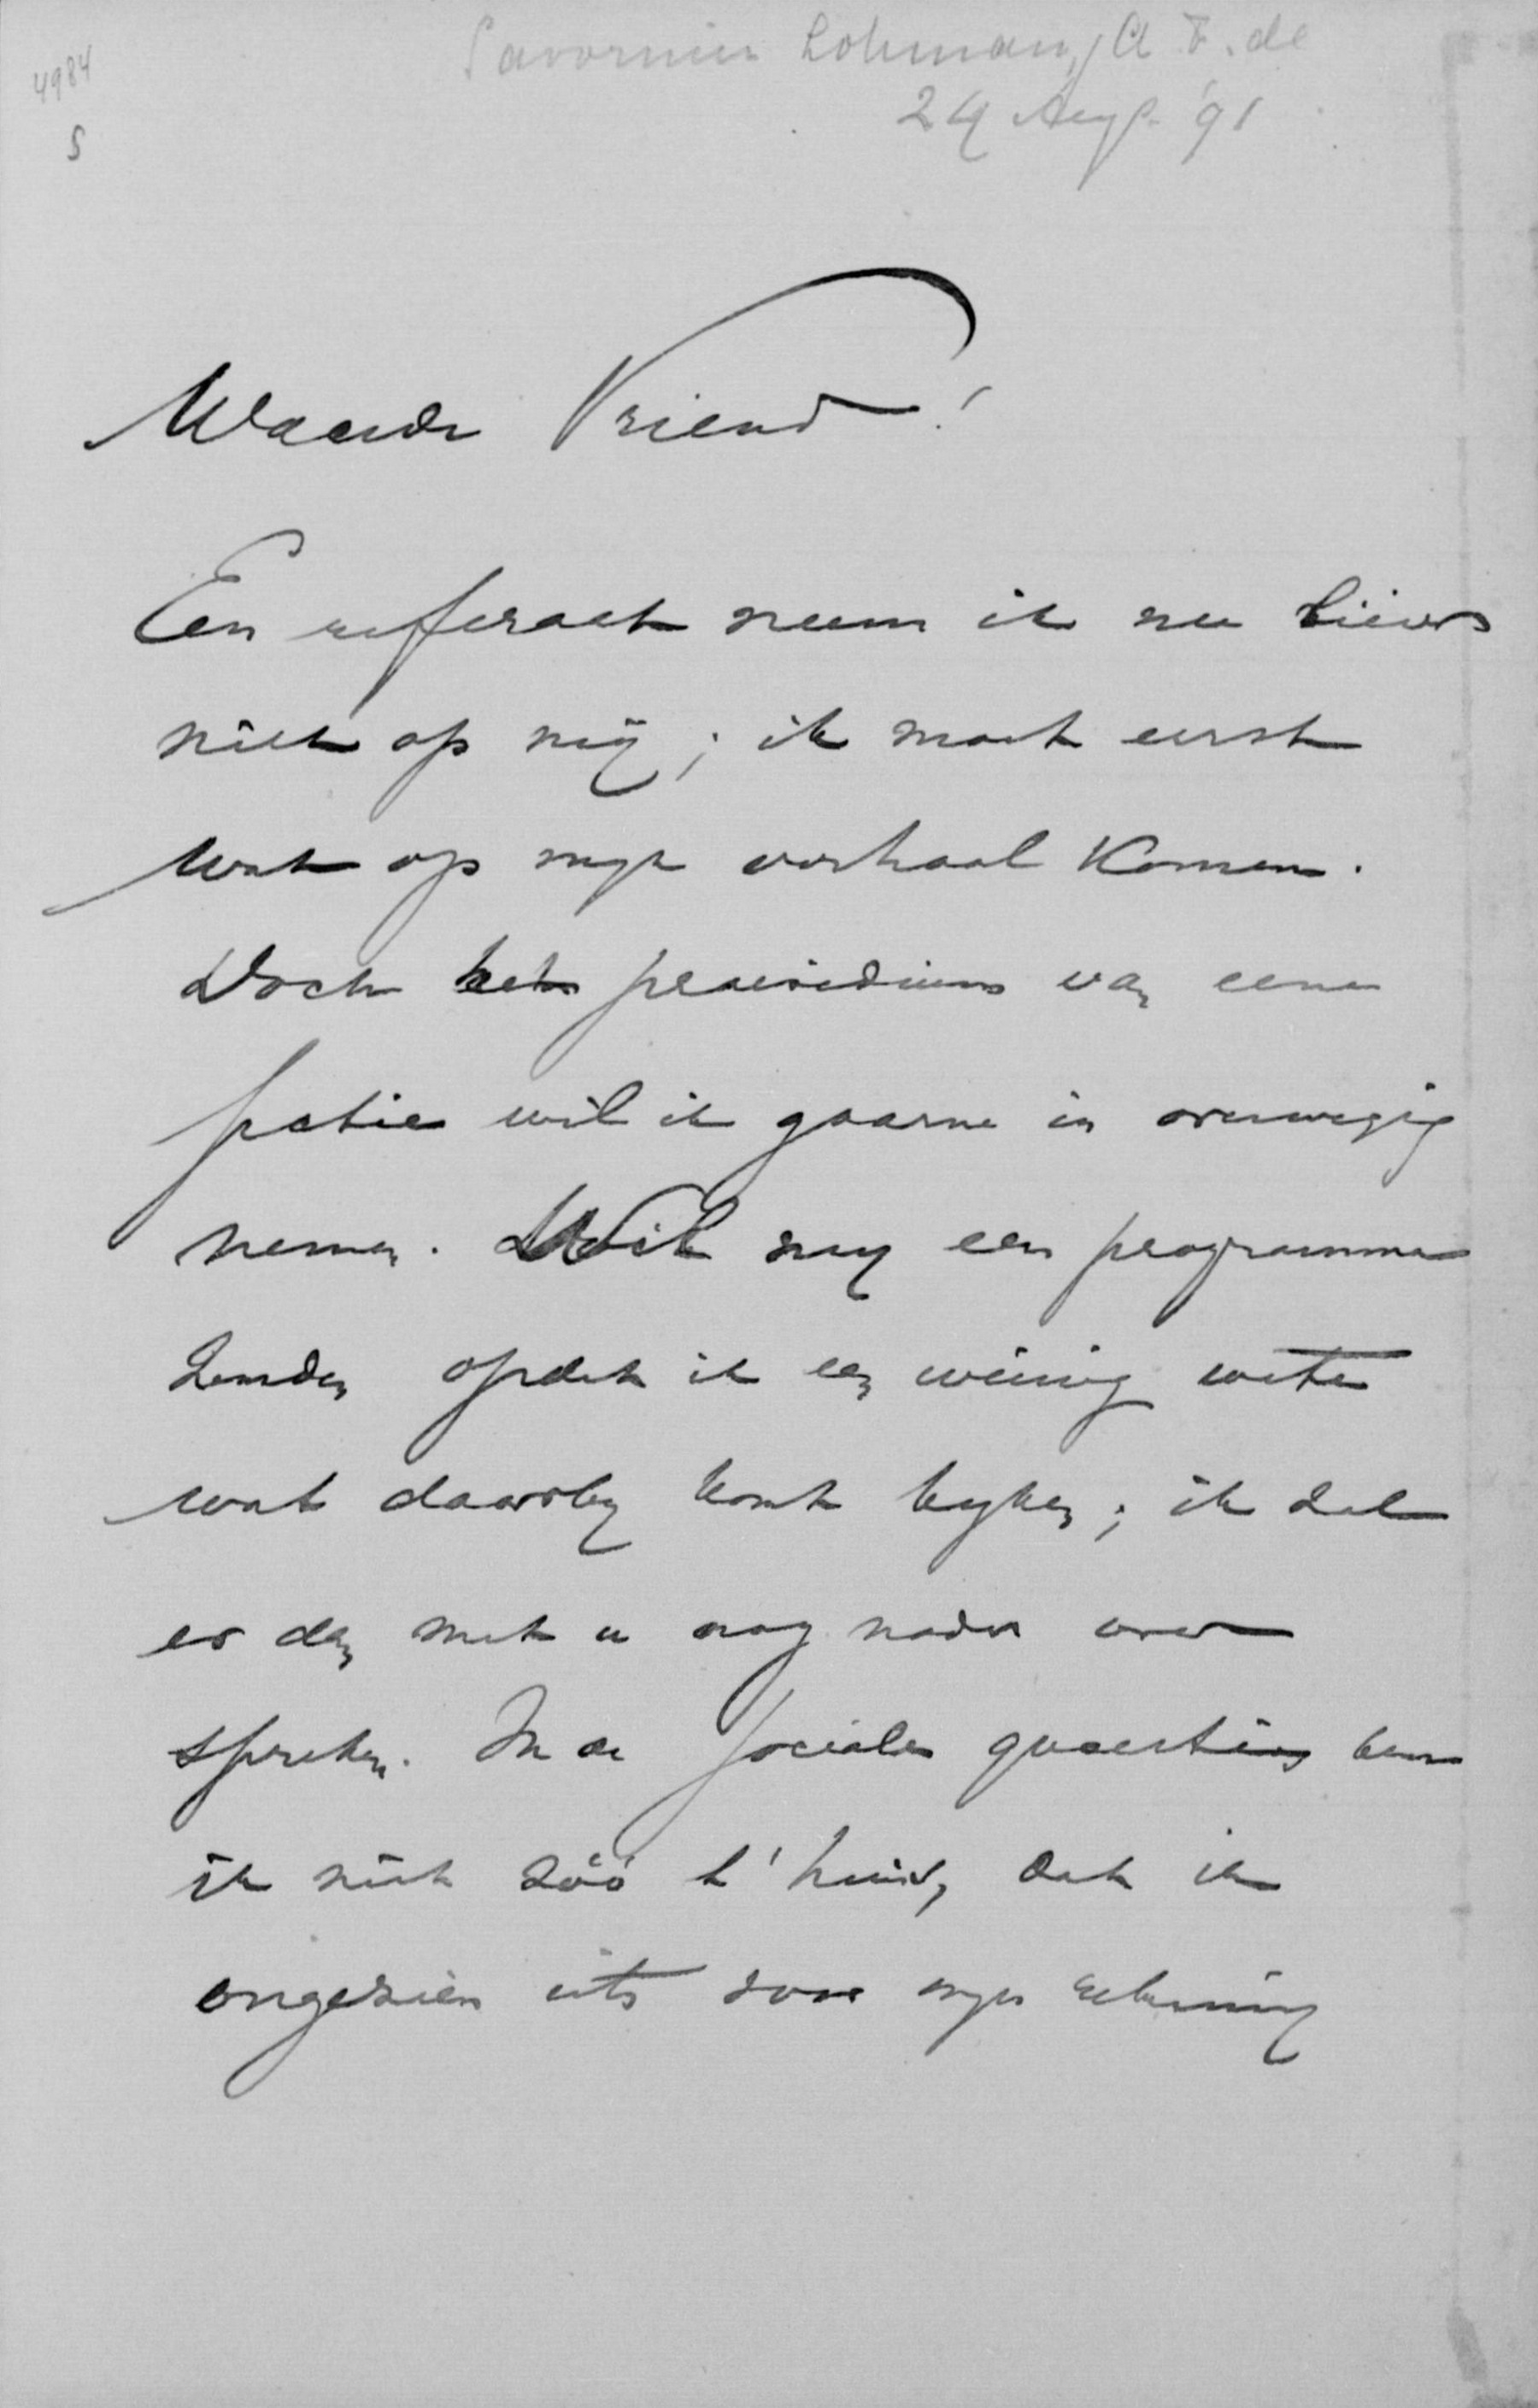 4984
S
Savornin Lohman, A F. de
24 Aug. '91
Waarde Vriend!
Een refferaat neem ik nu liever
niet op mij; ik moet eerst
wat op mijn verhaal komen.
Doch het praesidium van eene
sectie wil ik gaarne in overweging
nemen. Wil mij een programma
zenden opdat ik een weinig wete
wat daarbij komt kijken; ik zal
er dan met u nog nader over
spreken. In de sociale quaesties ben
ik niet zóó t'huis, dat ik
ongezien iets voor mijn rekening